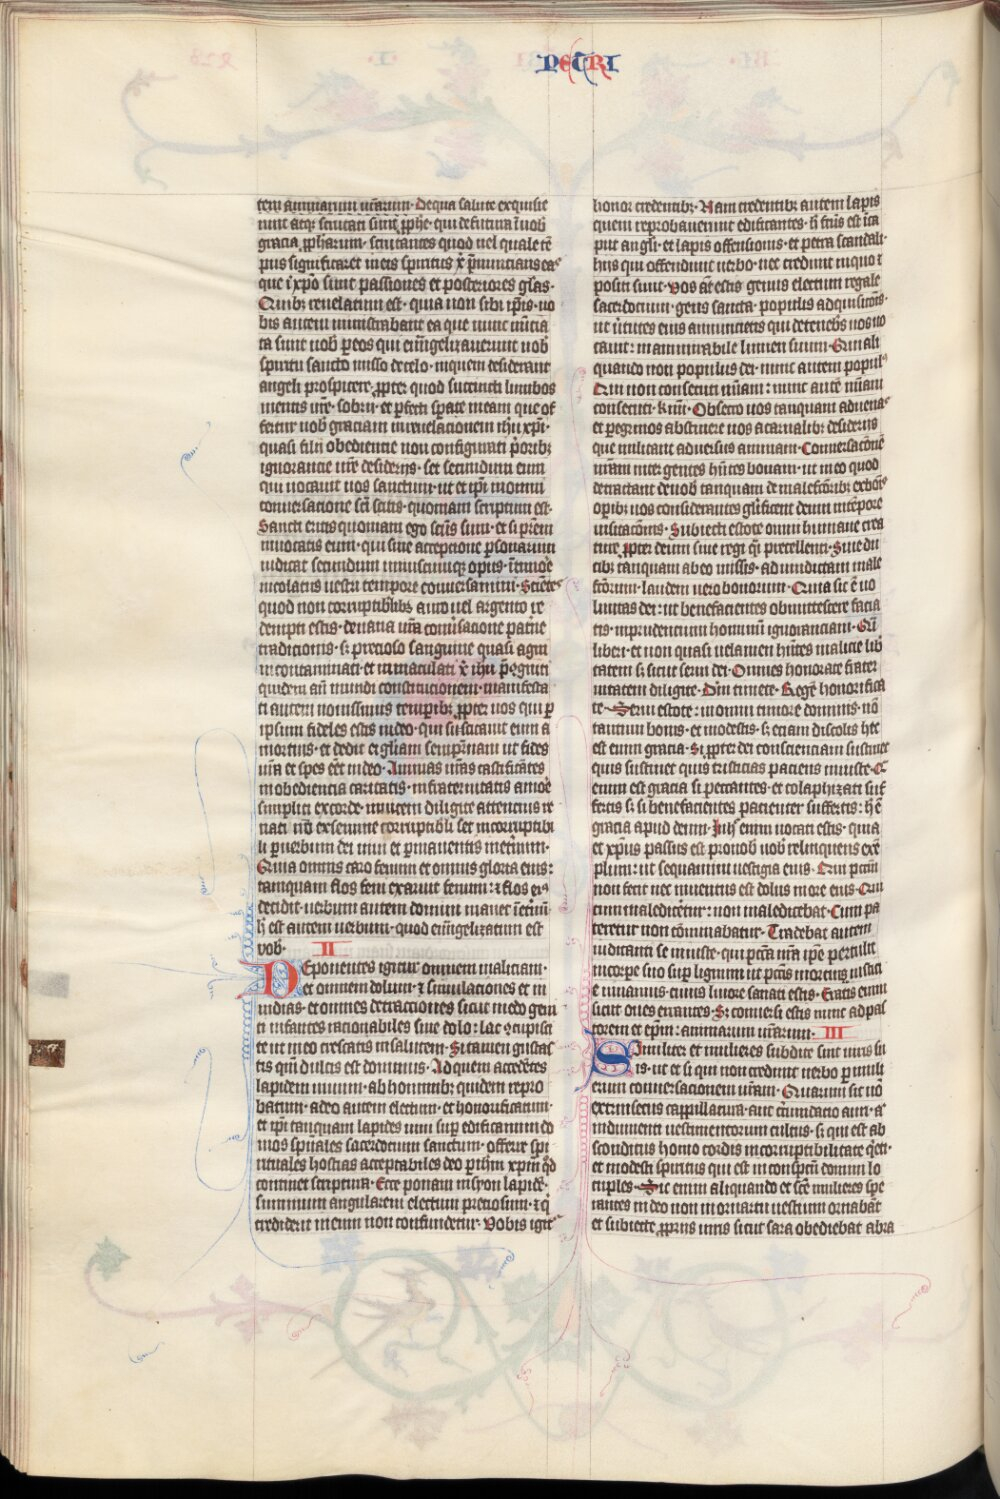 PETRI
tem animarum urarum· Dequa salute exquisie
runt atqȝ scrutati sunt pphe· qui defutura i uob
gracia ppharum· scrutantes quod uel quale te
pus significaret in eis spiritus x pnuncians eas
que i xpo sunt passiones et posteriores glas·
Quibȝ reuelatum est· quia non sibi ipis· uo
bis autem ministrabant ea que nunc nuncia
ta sunt uob p eos qui euuangelizauerunt uob
spiritu sancto misso decelo· inquem desiderant
angeli prospicere· ppter quod succincti lumbos
mentis ure· sobrii· et pfecti spate in eam que of
fertur uob graciam in reuelacionem ihu xpi·
quasi filii obediencie non configurati prioribȝ
ignorancie ure desideriis· set secundum eum
qui uocauit uos sanctum· ut et ipi in omni
conuersacione sci sitis· quoniam scriptum est·
Sancti eritis quoniam ego scus sum· et si prem
inuocatis eum· qui sine accepcione psonarum
iudicat secundum uniuscuiusqȝ opus· i timore
incolatus uestri tempore conuersamini· Scietes
quod non corruptibilibȝ auro uel argento re
dempti estis· deuana ura conuersacione patne
tradicionis· sȝ precioso sanguine quasi agni
incontaminati· et inmaculati x ihu precogniti
quidem an mundi constitucionem· manifesta
ti autem nouissimis temporibȝ ppter uos qui p
ipsum fideles estis in deo· qui suscitauit eum a
mortuis· et dedit ei gliam sempiternam ut fides
ura et spes eet in deo· Animas uras castificates
in obediencia caritatis· in fraternitatis amore
simplici ex corde· inuicem diligite attencius re
nati no ex semine corruptibili set incorruptibi
li p uerbum dei uiui et pmanentis in eternum·
Quia omnis caro fenum et omnis gloria eius:
tamquam flos feni exaruit fenum: et flos eis
decidit· uerbum autem domini manet i eternum·
h est autem uerbum· quod euuangelizatum est
uob· II
Deponentes igitur omnem maliciam·
et omnem dolum· et simulaciones et in
uidias· et omnes detracciones sicut modo geni
ti infantes racionabiles sine dolo: lac concupisci
te ut in eo crescatis in salutem· Si tamen gustas
tis qui dulcis est dominus· Ad quem accedetes
lapidem uiuum· ab hominibȝ quidem repro
batum· a deo autem electum· et honorificatum·
et ipi tanquam lapides uiui sup edificamini do
mos spirituales sacerdotium sanctum· offerre spi
rituales hostias acceptabiles deo p ihm xpm qd
continet scriptura· Ecce ponam in syon lapide·
summum angularem electum preciosum· et q
crediderit in eum non confundetur· Vobis igit
honor credentibȝ· Nam credentibȝ autem lapis
quem reprobauerunt edificantes· h fcus est i ca
put anguli· et lapis offensionis· et petra scandali·
hiis qui offendunt uerbo· nec credunt in quo et
positi sunt· Vos at estis genus electum regale
sacerdotium· gens sancta· populus adquisicois·
ut uirtutes eius annuncietis qui detenebris uos uo
cauit: in ammirabile lumen suum· Qui ali
quando non populus dei· nunc autem populus
Qui non consecuti miam: nunc aute miam
consecuti· krmi· Obsecro uos tanquam aduenas
et pegrinos abstinere uos a carnalibȝ desideriis
que militant aduersus animam· Conuersacione
uram inter gentes hntes bonam· ut in eo quod
detractant deuob tanquam de malefcoribȝ ex bois
opibȝ uos considerantes glificent deum in tempore
uisitacois· Subiecti estote omni humane crea
ture ppter deum siue regi qi precellenti· Siue du
cibȝ tanquam ab eo missis· ad uindictam male
fcorum· laudem uero bonorum· Quia sic e uo
luntas dei: ut benefacientes obmutescere facia
tis· inprudencium hominum ignoranciam· Qi
liberi· et non quasi uelamen hntes malicie lib
tatem sȝ sicut serui dei· Omnes honorate frater
nitatem diligite· Dm timete· Rege honorifica
te· Serui estote: in omni timore dominis· no
tantum bonis· et modestis· sȝ eciam discolis hec
est enim gracia· Si ppter dei conscienciam sustinet
quis sustinet quis tristicias paciens iniuste· Q
enim est gracia si peccantes· et colaphizati suf
fertis sȝ si benefacientes pacienter suffertis: hec
gracia apud deum· In hoc enim uocati estis· quia
et xpus passus est pro nob uob relinquens exe
plum: ut sequamini uestigia eius· Qui pctm
non fecit nec inuentus est dolus in ore eius· Qui
cum malediceretur: non maledicebat· Cum pa
teretur non comminabatur· Tradebat autem
iudicanti se iniuste· qui pcca nra ipe pertulit
in corpe suo sup lignum ut pccis mortui iusticie
e uiuamus· cuius liuore sanati estis· Eratis enim
sicut oues errantes· Sȝ conuersi estis nunc ad pas
torem et epm: animarum urarum· III
Similiter et mulieres subdite sint uiris su
is· ut et si qui non credunt uerbo p muli
erum conuersacionem uram· Quarum sit no
extrinsecus cappillatura· aut circumdacio auri· a
indumenti uestimentorum cultus· sȝ qui est ab
sconditus homo cordis incorruptibilitate qieti·
et modesti spiritus qui est in conspectu domini lo
cuples· Sic enim aliquando et sce mulieres spe
rantes in deo non in ornatu uestium ornabat
et subiecte ppriis uiris sicut sara obediebat abra